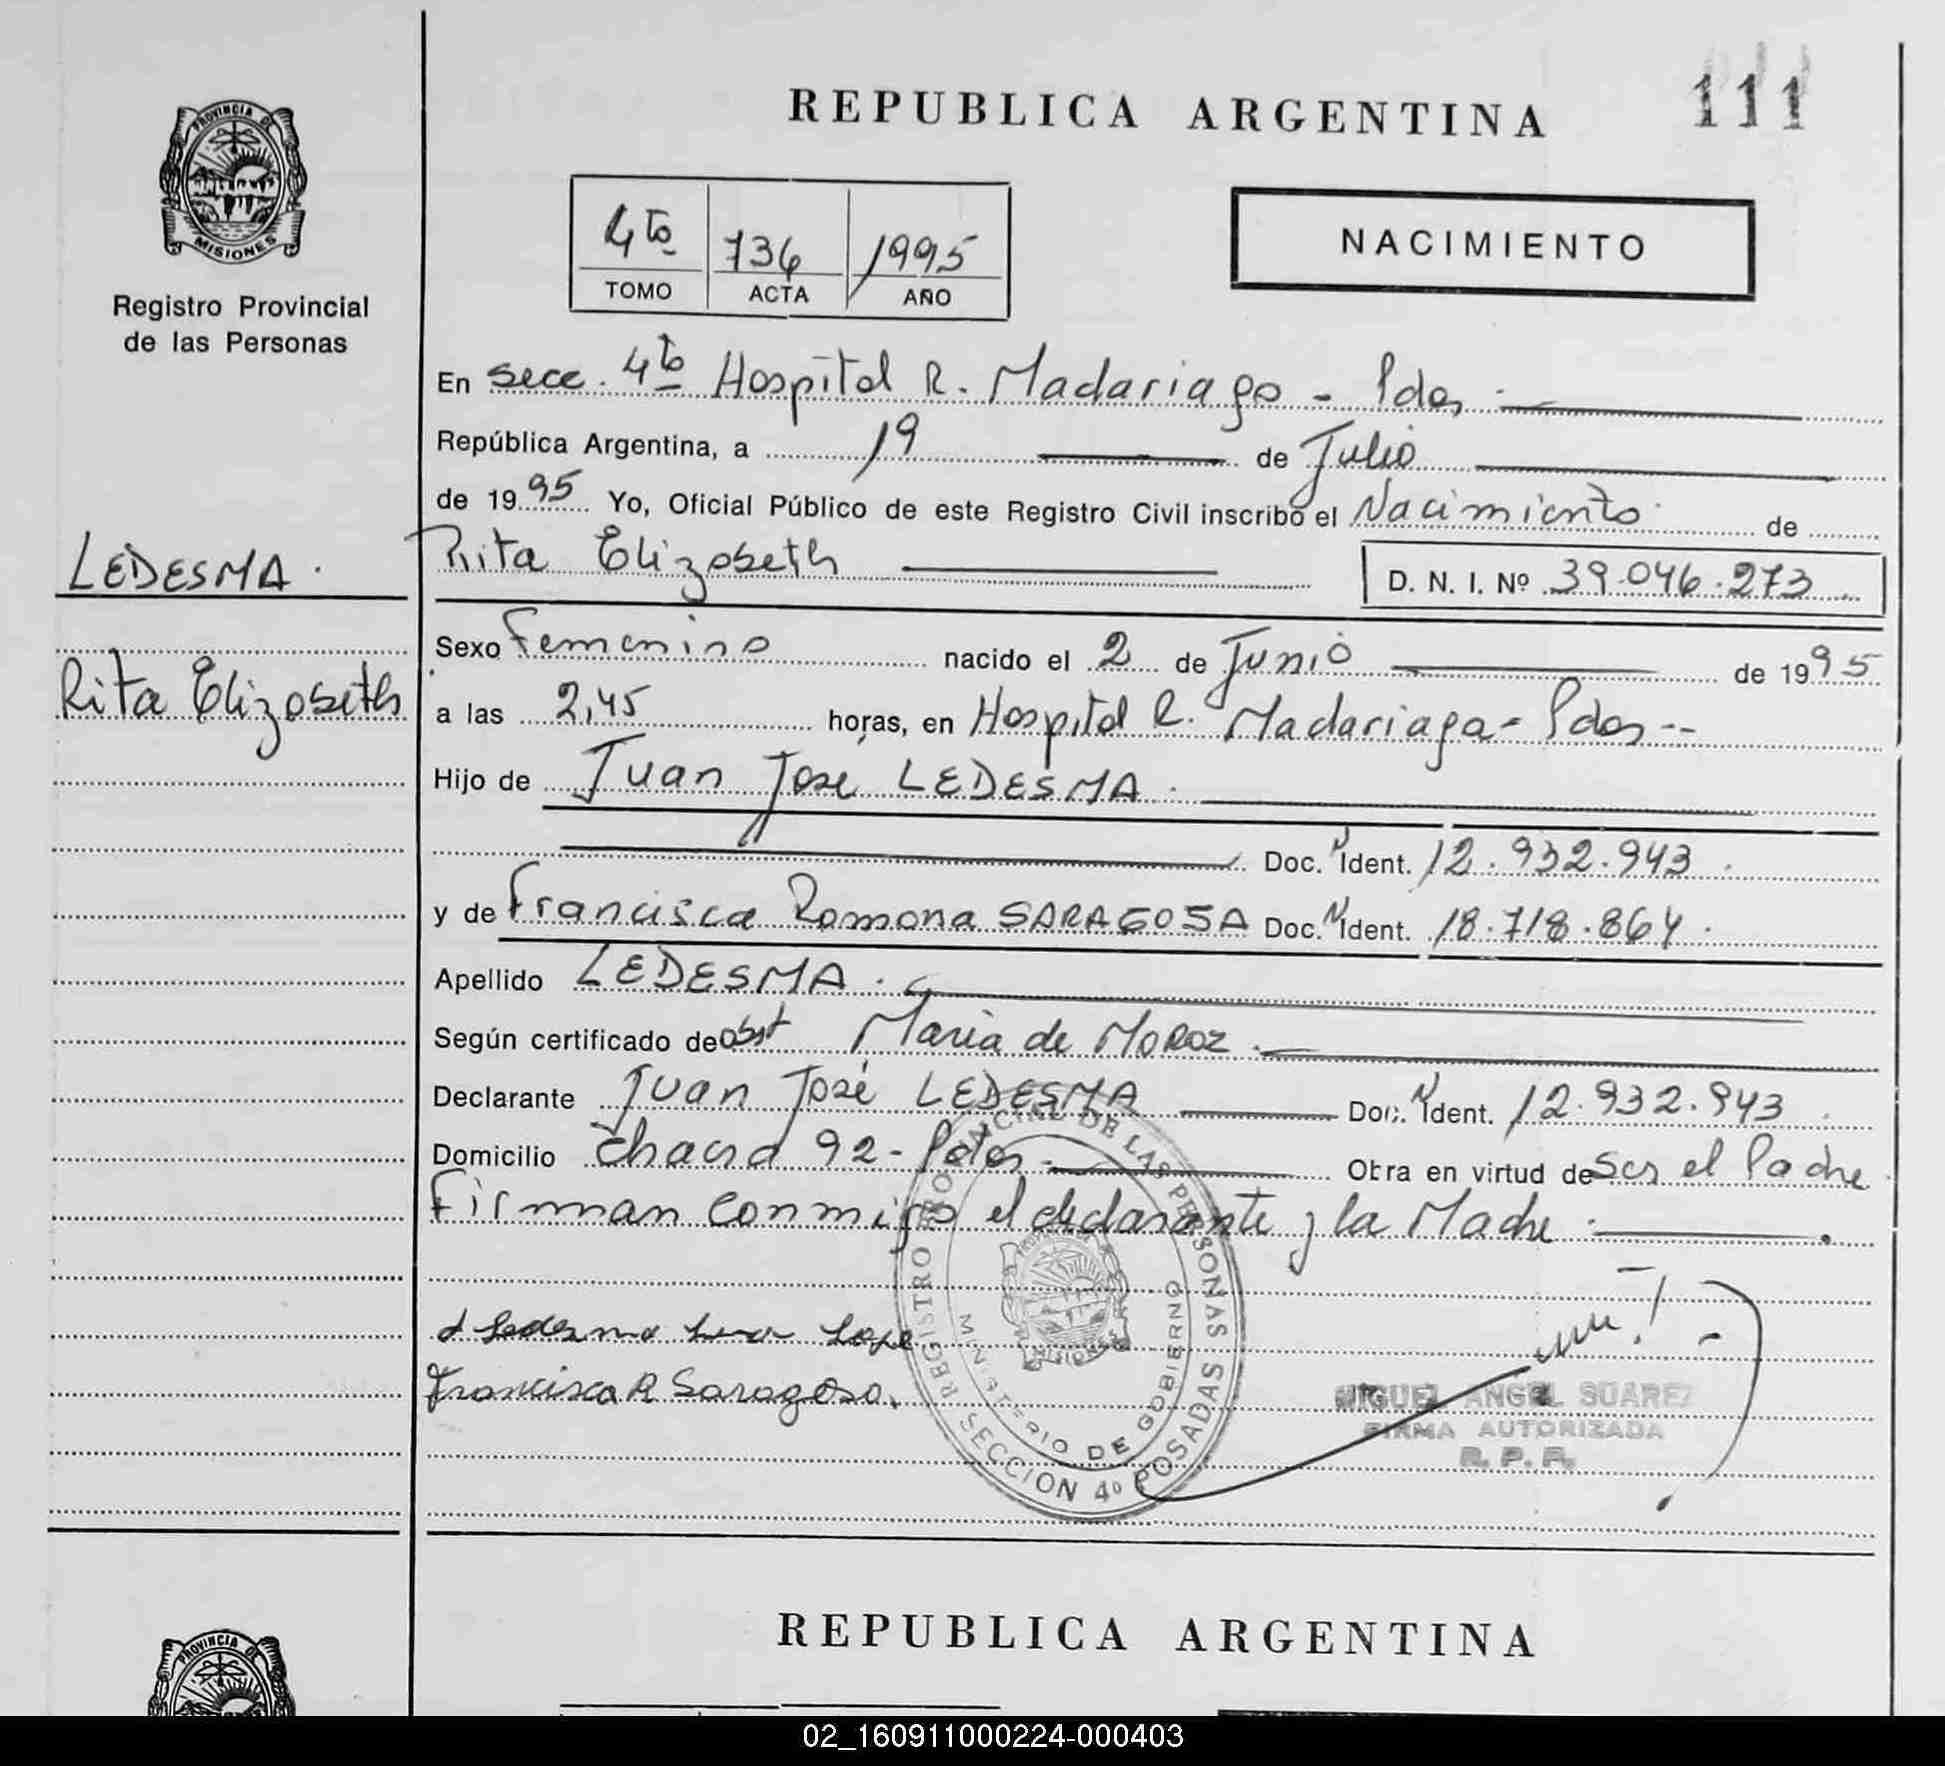 REPUBLICA ARGENTINA
111
PROVINCIA DE MISIONES
Registro Provincial
de las Personas
4to 736 1995
TOMO ACTA AÑO
NACIMIENTO
En secc. 4to Hospital R. Madariaga - Pdas
República Argentina, a 19 de Julio
de 1995 Yo, Oficial Público de este Registro Civil inscribo el Nacimiento de
Rita Elizabeth D. N. I. Nº 39.046.273
LEDESMA
Rita Elizabeth
Sexo Femenino nacido el 2 de Junio de 1995
a las 2,45 horas, en Hospital R. Madariaga - Pdas --
Hijo de Juan José LEDESMA
Doc. Ident. 12.932.943
y de Francisca Ramona SARAGOSA Doc. Ident. 18.718.864
Apellido LEDESMA
Según certificado de obst Maria de MOROZ
Declarante Juan José LEDESMA Doc. Ident. 12.932.943
Domicilio Chacra 92 - Pdas Obra en virtud de Ser el Padre
Firman conmigo el declarante y la Madre
Ledesma
Francisca R Saragosa.
REGISTRO PROVINCIAL DE LAS PERSONAS
MINISTERIO DE GOBIERNO
MISIONES
SECCION 4º POSADAS
MIGUEL ANGEL SUAREZ
FIRMA AUTORIZADA
R. P. P.
REPUBLICA ARGENTINA
PROVINCIA DE
02_160911000224-000403